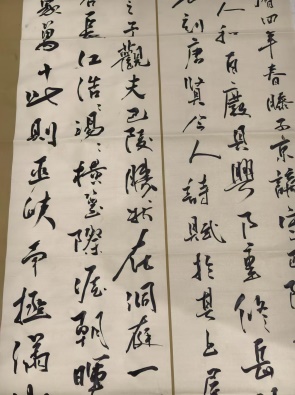 曆四年春滕子京謫守巴陵
人和百廢具興乃重修岳
刻唐賢今人詩賦於其上屬
之予觀夫巴陵勝狀在洞庭一
長江浩〻湯〻橫無際涯朝暉
萬千此則巫峽南極瀟